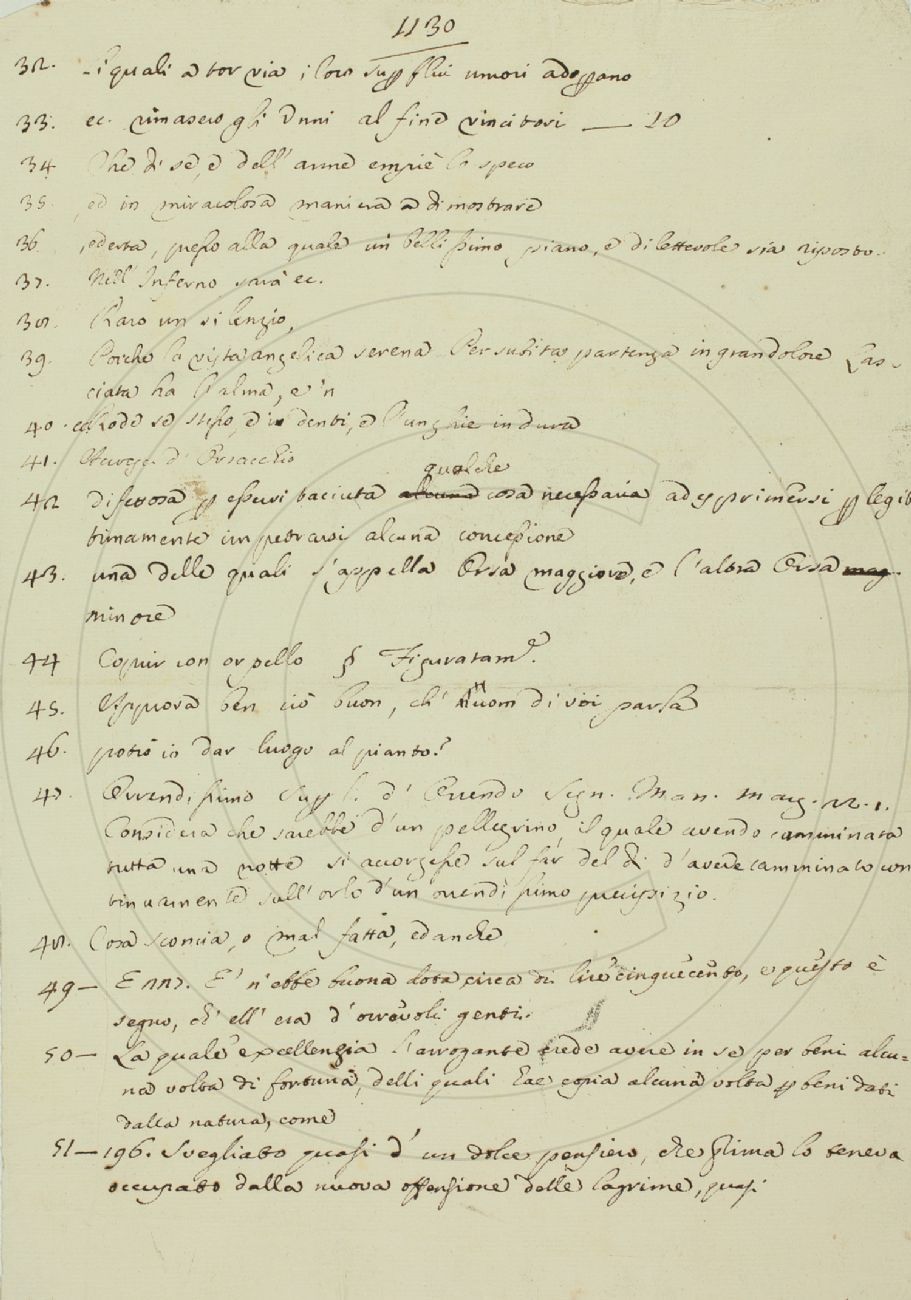 1130
32. - i quali a tor via i loro superflui umori adoprano
33. ec. rimasero gli Unni al fine vincitori — 20
34 Che di se, e dell' arme empiè lo speco
35. ed in miracolosa maniera a dimostrare
36. ederta, presso alla quale un bellissimo piano, e dilettevole sia riposto.
37. Nell' Inferno sarà ec.
38. Raro un silenzio,
39. Poiche la vista angelica serena Per subita partenza in gran dolore Las-
ciata ha l'alma, e 'n
40. Rode se stesso, e i denti, e l'unghie indura
41. d' Orsacchio
qualche
42 difettosa p essersi taciuta alcuna cosa necessaria ad esprimersi p legit
timamente impetrarsi alcuna concessione
43. una delle quali s'appella Orsa maggiore, e l'altra Orsa mag
minore
44 Coprir con orpello § Figuratam.e
45. Approva ben ciò buon, ch' uom di voi parla
46. potrò io dar luogo al pianto?
47. Orrendissimo Superl. d' Orrendo Segn. Man. Mag. 12. 1.
Considera che sarebbe d'un pellegrino, il quale avendo camminata
tutta una notte si accorgesse sul far del dì d'avere camminato con
tinuamente sull' orlo d'un orrendissimo precipizio.
48. Cosa sconcia, o mal fatta, ed anche
49 — E' n'ebbe buona dota circa di lire cinquecento, e questo è
segno, ch' ell' era d'orrevoli genti.
50 — La quale excellenzia l'arrogante crede avere in se per beni alcu-
na volta di fortuna, delli quali hae copia alcuna volta p beni dati
dalla natura, come
51 — 196. Svegliato quasi d' un dolce pensiero, che prima lo teneva
occupato dalla nuova offensione delle lagrime, quasi